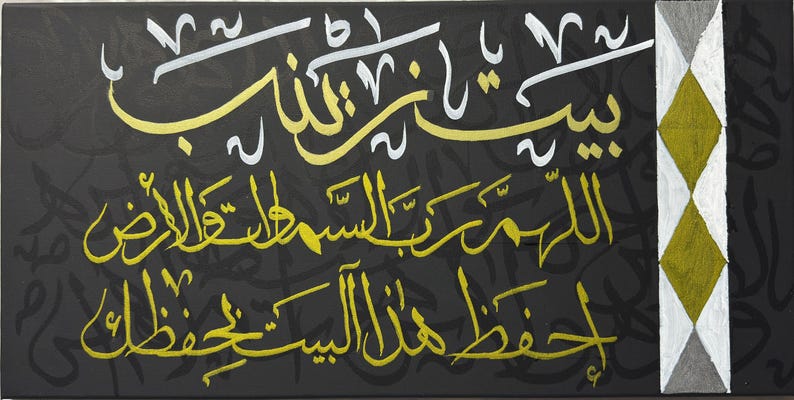 بيت زينب
اللهمَّ رَبَّ السَّمواتِ وَالأرض
إحفَظ هٰذا البيتَ بِحِفظِك